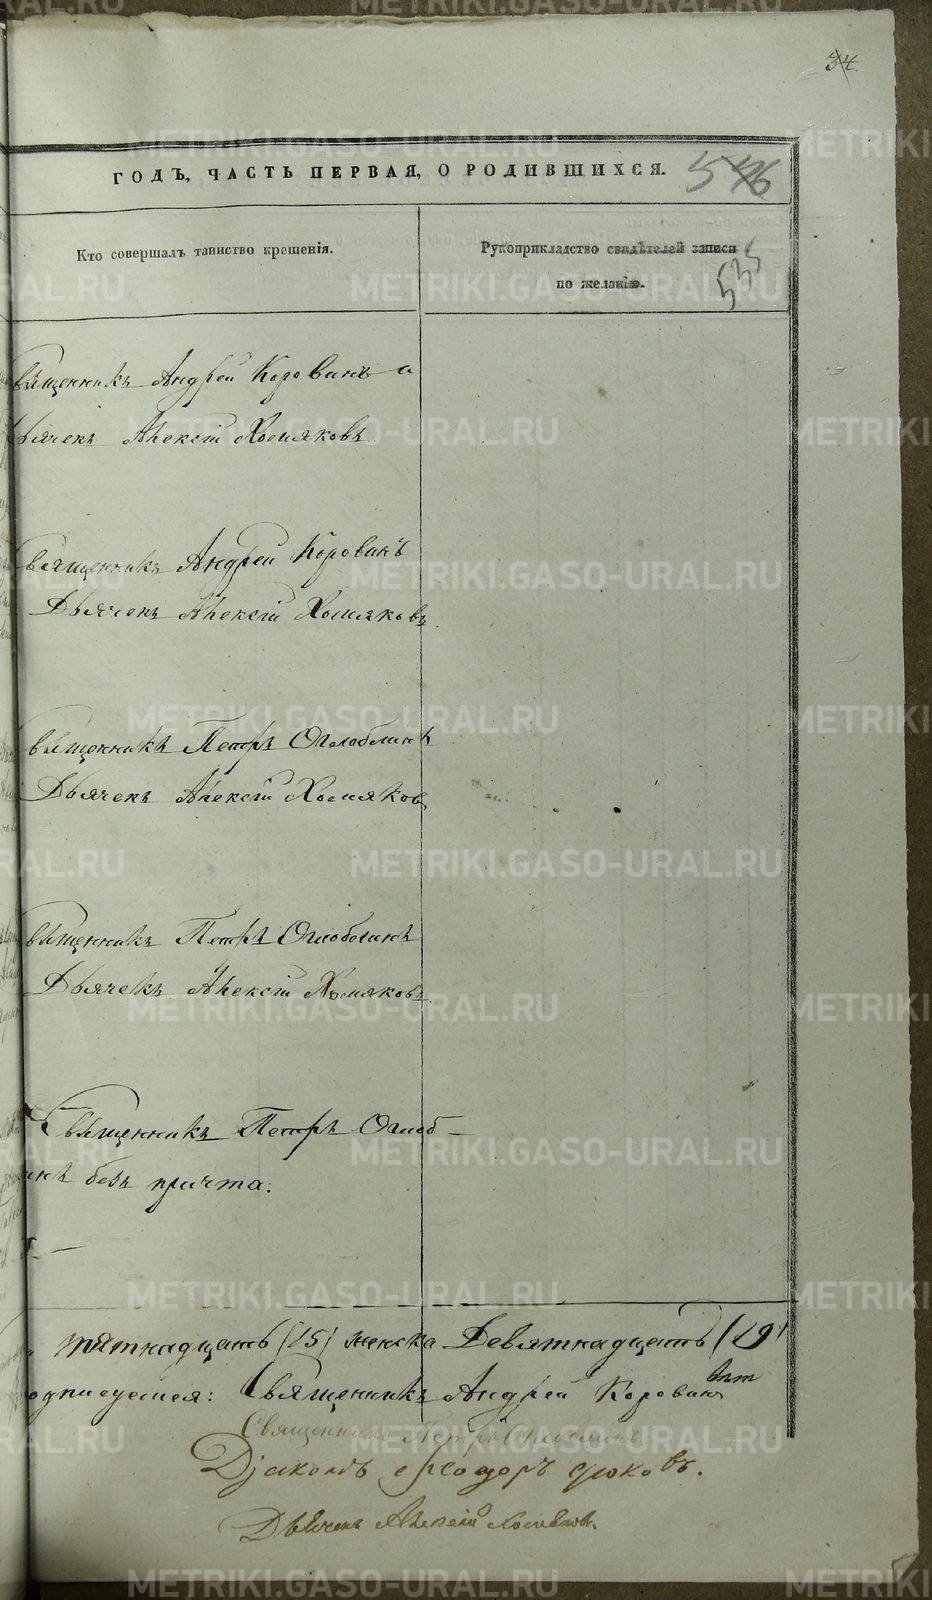 34.
ГОДЪ, ЧАСТЬ ПЕРВАЯ, О РОДИВШИХСЯ.
546
Кто совершалъ таинство крещенія.
Рукоприкладство свидѣтелей записи
по желанію.
535
вященникъ Андрей Коровинъ и
ьячекъ Алексѣй Хомяковъ
Священникъ Андрей Коровинъ
Дьячекъ Алексѣй Хомяковъ
вященникъ Петръ Оглоблинъ
Дьячекъ Алексѣй Хомяковъ
вященникъ Петръ Оглоблинъ
Дьячекъ Алексѣй Хомяковъ
Священникъ Петръ Оглоб-
инъ безъ причта.
пятнадцать (15) женска Девятнадцать (19)
одписуемся: Священникъ Андрей Коровинъ
Священникъ Петръ Оглоблинъ
Діаконъ
Дьячекъ Алексѣй Хомяковъ.
METRIKI.GASO-URAL.RU